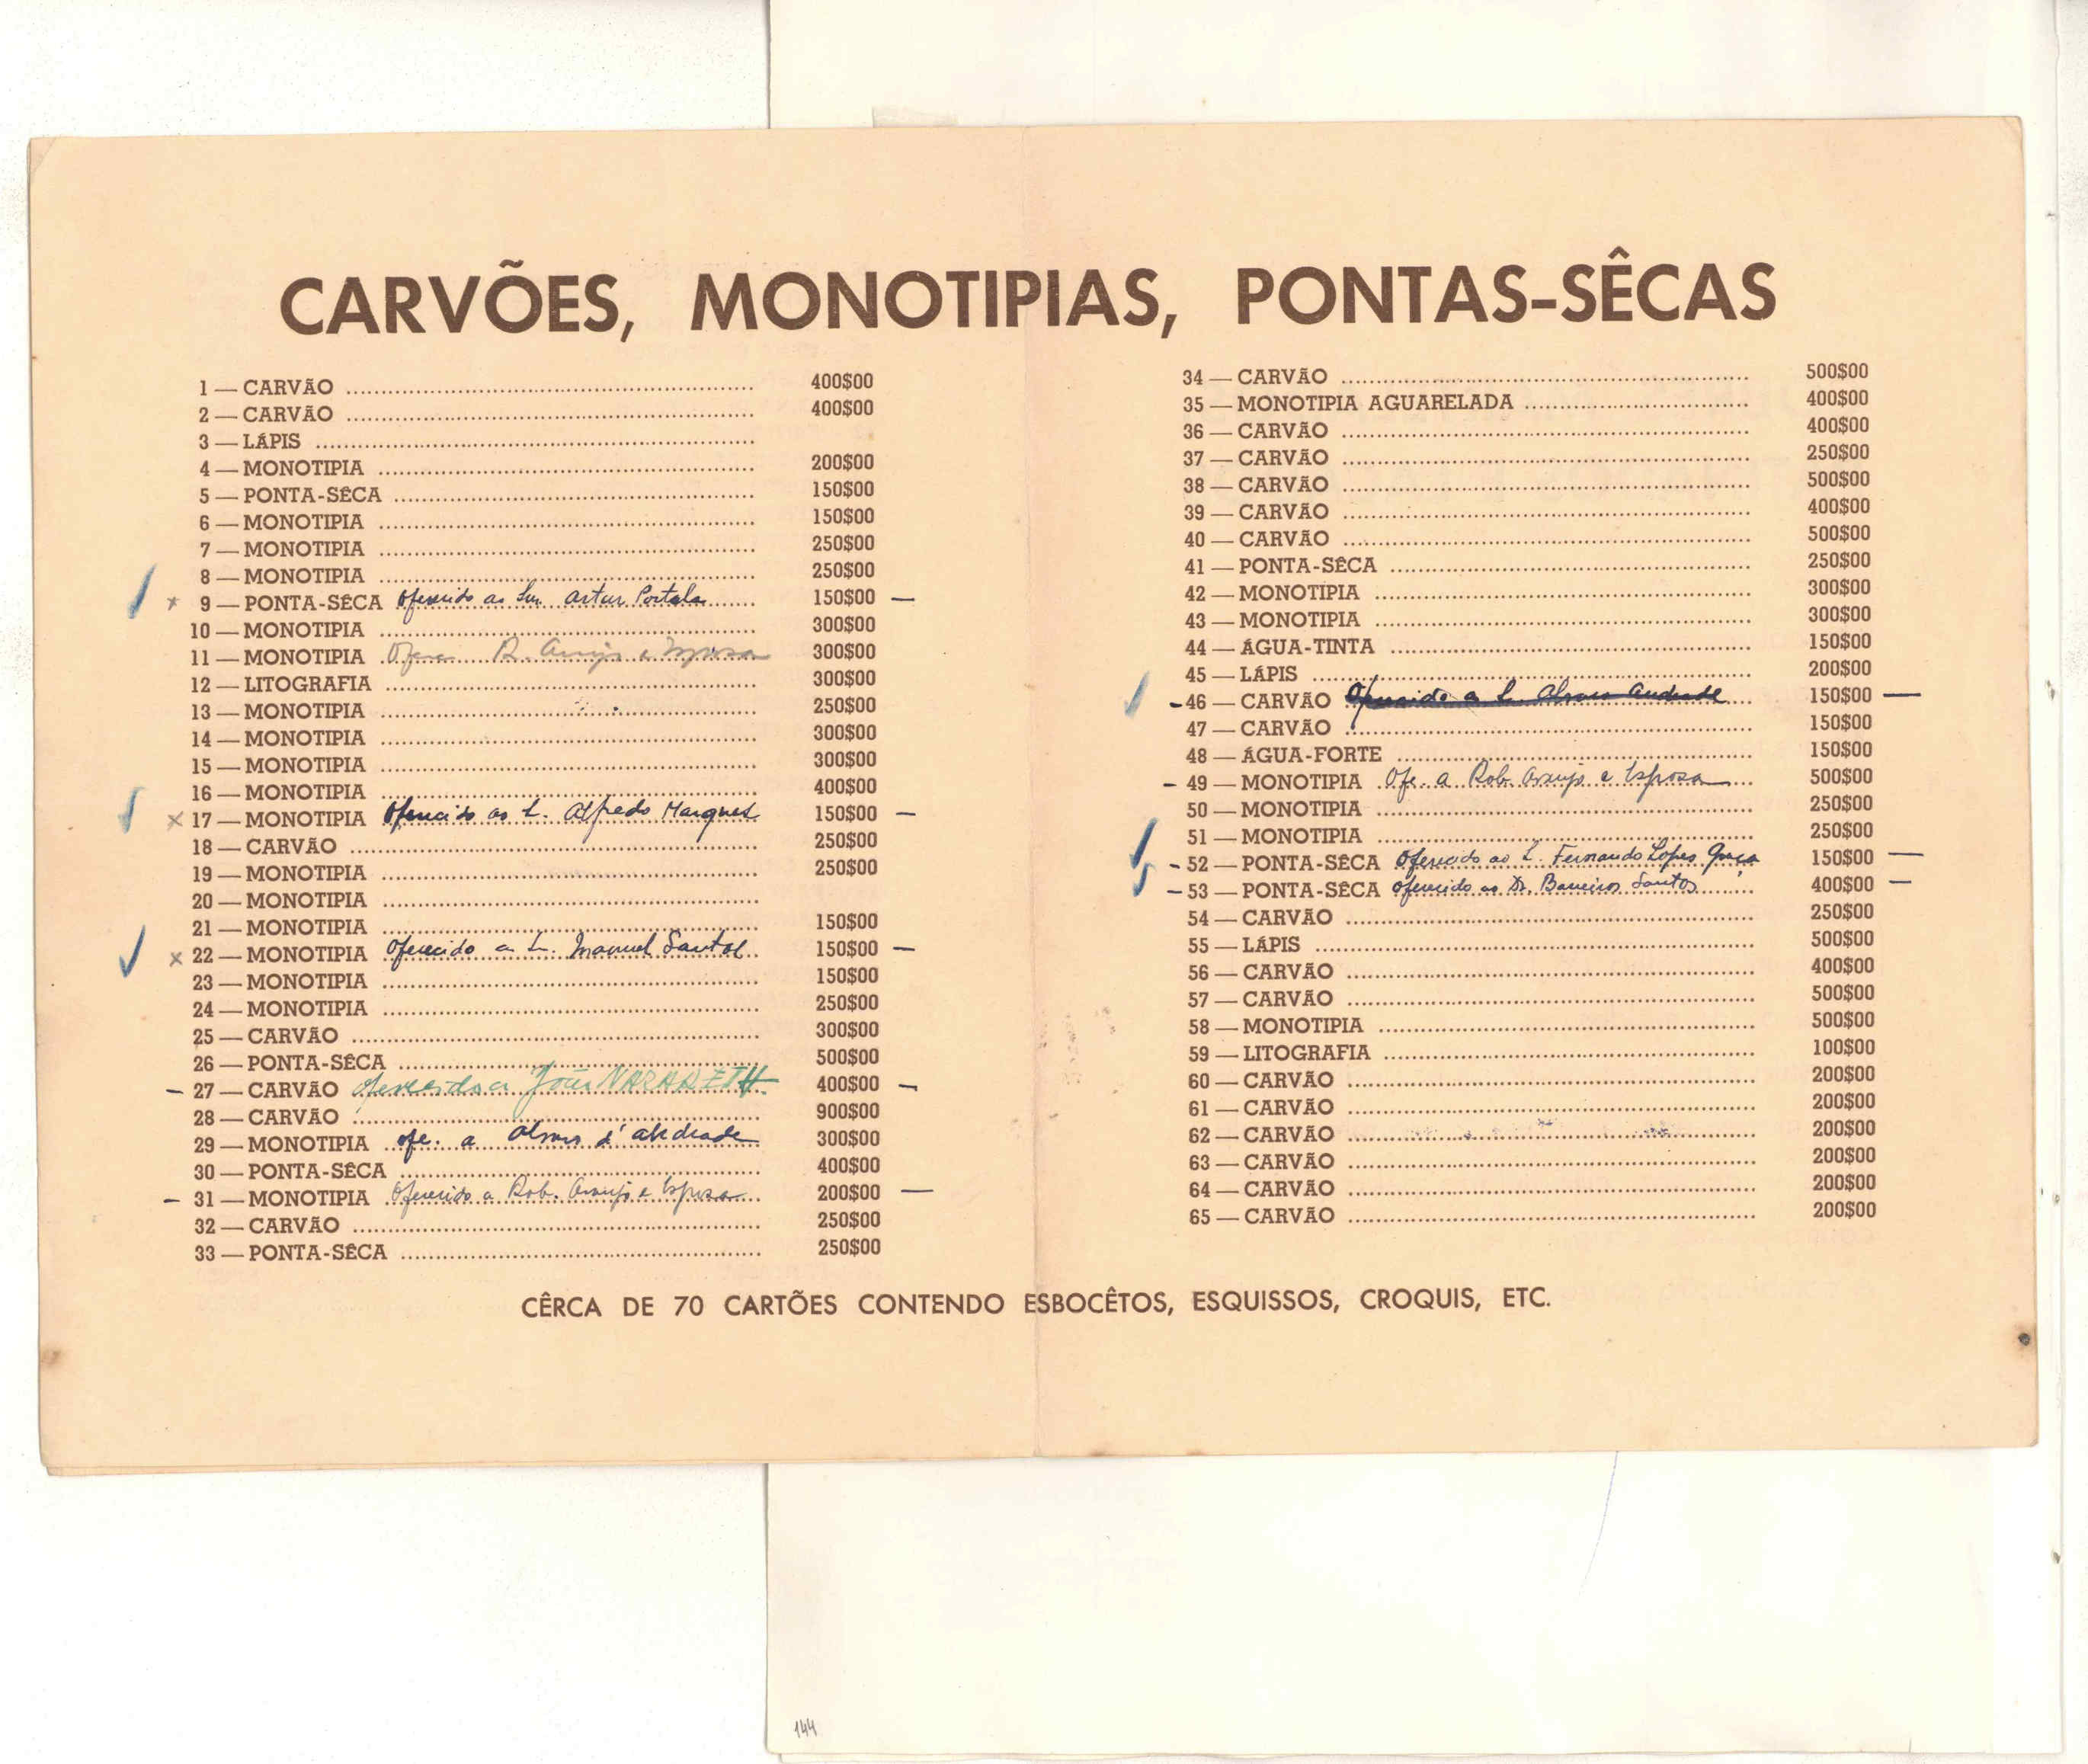 CARVÕES, MONOTIPIAS, PONTAS-SÊCAS
1 — CARVÃO .......... 400$00
2 — CARVÃO .......... 400$00
3 — LÁPIS ..........
4 — MONOTIPIA .......... 200$00
5 — PONTA-SÊCA .......... 150$00
6 — MONOTIPIA .......... 150$00
7 — MONOTIPIA .......... 250$00
8 — MONOTIPIA .......... 250$00
x 9 — PONTA-SÊCA Oferecido ao Snr. Artur Portela 150$00 —
10 — MONOTIPIA .......... 300$00
11 — MONOTIPIA R. Araujo e Esposa 300$00
12 — LITOGRAFIA .......... 300$00
13 — MONOTIPIA .......... 250$00
14 — MONOTIPIA .......... 300$00
15 — MONOTIPIA .......... 300$00
16 — MONOTIPIA .......... 400$00
x 17 — MONOTIPIA Oferecido ao Alfredo Marques 150$00 —
18 — CARVÃO .......... 250$00
19 — MONOTIPIA .......... 250$00
20 — MONOTIPIA ..........
21 — MONOTIPIA .......... 150$00
x 22 — MONOTIPIA Oferecido a Manuel Santos 150$00 —
23 — MONOTIPIA .......... 150$00
24 — MONOTIPIA .......... 250$00
25 — CARVÃO .......... 300$00
26 — PONTA-SÊCA .......... 500$00
– 27 — CARVÃO oferecido a João NAZARETH 400$00 —
28 — CARVÃO .......... 900$00
29 — MONOTIPIA ofe. a Alves d'Andrade 300$00
30 — PONTA-SÊCA .......... 400$00
– 31 — MONOTIPIA Oferecido a Rob. Araujo e Esposa 200$00 —
32 — CARVÃO .......... 250$00
33 — PONTA-SÊCA .......... 250$00
34 — CARVÃO .......... 500$00
35 — MONOTIPIA AGUARELADA .......... 400$00
36 — CARVÃO .......... 400$00
37 — CARVÃO .......... 250$00
38 — CARVÃO .......... 500$00
39 — CARVÃO .......... 400$00
40 — CARVÃO .......... 500$00
41 — PONTA-SÊCA .......... 250$00
42 — MONOTIPIA .......... 300$00
43 — MONOTIPIA .......... 300$00
44 — ÁGUA-TINTA .......... 150$00
45 — LÁPIS .......... 200$00
– 46 — CARVÃO Oferecido a Alves Andrade 150$00 —
47 — CARVÃO .......... 150$00
48 — ÁGUA-FORTE .......... 150$00
– 49 — MONOTIPIA Ofe. a Rob. Araujo e Esposa 500$00
50 — MONOTIPIA .......... 250$00
51 — MONOTIPIA .......... 250$00
– 52 — PONTA-SÊCA Oferecido ao Fernando Lopes Graça 150$00 —
– 53 — PONTA-SÊCA oferecido ao Dr. Barreiros Santos 400$00 —
54 — CARVÃO .......... 250$00
55 — LÁPIS .......... 500$00
56 — CARVÃO .......... 400$00
57 — CARVÃO .......... 500$00
58 — MONOTIPIA .......... 500$00
59 — LITOGRAFIA .......... 100$00
60 — CARVÃO .......... 200$00
61 — CARVÃO .......... 200$00
62 — CARVÃO .......... 200$00
63 — CARVÃO .......... 200$00
64 — CARVÃO .......... 200$00
65 — CARVÃO .......... 200$00
CÊRCA DE 70 CARTÕES CONTENDO ESBOCÊTOS, ESQUISSOS, CROQUIS, ETC.
144